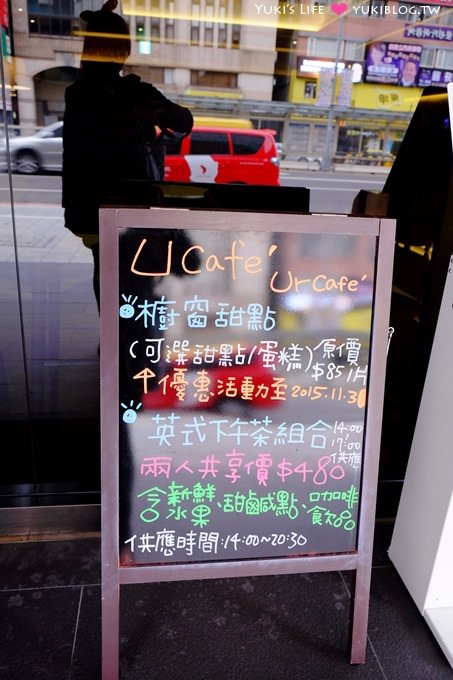 YUKI'S LIFE ♥ YUKIBLOG.TW
U Café Ur Café
櫥窗甜點
(可選甜點/蛋糕)原價
$85/片
優惠活動至2015.11.30
英式下午茶組合 14:00~17:00供應
兩人共享價$480
含新鮮水果、甜鹹點、咖啡飲品
供應時間:14:00~20:30